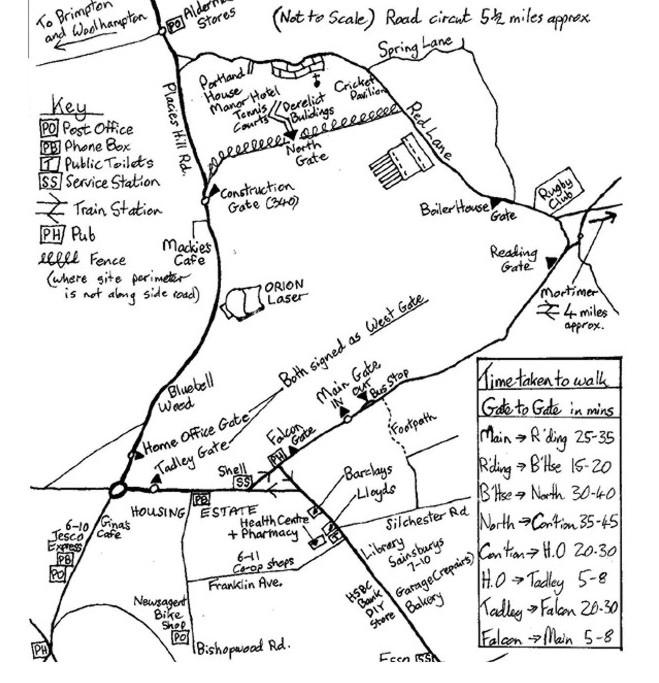 (Not to Scale) Road circut 5½ miles approx
To Brimpton
and Woolhampton
PO
Stores
Spring Lane
Portland
House
Manor Hotel
Tennis
Courts
Derelict
Buildings
Cricket
Pavilion
Placies Hill Rd.
Red Lane
North
Gate
Key
PO Post Office
PB Phone Box
T Public Toilets
SS Service Station
Train Station
PH Pub
Fence
(where site perimeter
is not along side road)
Construction
Gate (340)
Mackie's
Cafe
Boiler House
Gate
Rugby
Club
Reading
Gate
Mortimer
4 miles
approx.
ORION
Laser
Both signed as West Gate
Main Gate
IN OUT
Bus Stop
Bluebell
Wood
Home Office Gate
Tadley Gate
Falcon
Gate
PH
Footpath
Shell
SS
Barclays
Lloyds
HOUSING ESTATE
PB
Health Centre
+ Pharmacy
T
Silchester Rd
6-10
Tesco
Express
PB
PO
Gina's
Cafe
6-11
Co-op shops
Franklin Ave.
Library
Sainsburys
7-10
Garage (repairs)
Bakery
HSBC
Bank
DIY
Store
Newsagent
Bike
Shop
PO
Bishopwood Rd.
PH
Esso SS
Time taken to walk
Gate to Gate in mins
Main → R'ding 25-35
R'ding → B'Hse 15-20
B'Hse → North 30-40
North → Con'tion 35-45
Con'tion → H.O 20-30
H.O → Tadley 5-8
Tadley → Falcon 20-30
Falcon → Main 5-8